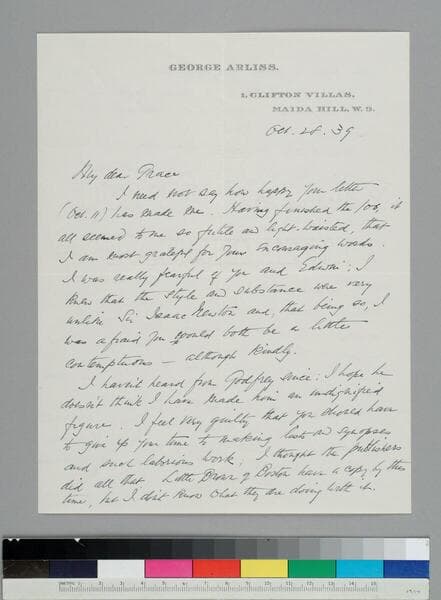 GEORGE ARLISS.
1, CLIFTON VILLAS,
MAIDA HILL, W. 9.
Oct. 28. 39
My dear Grace
I need not say how happy your letter
(Oct. 11) has made me. Having finished the job it
all seemed to me so futile and light-waisted, that
I am most grateful for your encouraging words.
I was really fearful of you and Edwin: I
knew that the style and substance were very
unlike Sir Isaac Newton and, that being so, I
was afraid you would both be a little
contemptuous — although kindly.
I haven't heard from Godfrey since: I hope he
doesn't think I have made him an undignified
figure. I feel very guilty that you should have
to give up your time to making lists and synopses
and such laborious work; I thought the publishers
did all that. Little Brown of Boston have a copy by this
time, but I don't know what they are doing with it.